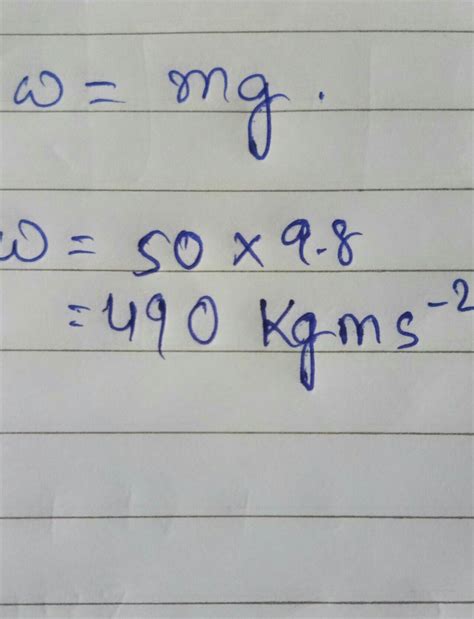 w = mg.
w = 50 × 9.8
= 490 Kgms⁻²